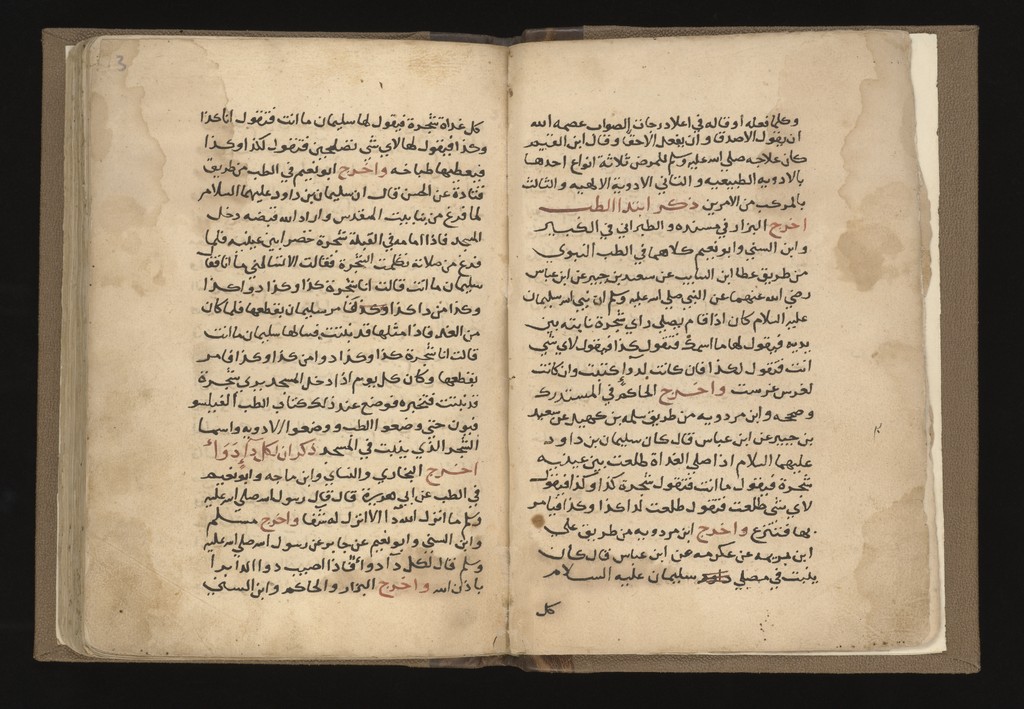 وكلما فعله او قاله في اعلا درجات الصواب عصمه الله
ان يقول الا صدقا و أن يفعل الا حقا وقال ابن القيم
كان علاجه صلى الله عليه وسلم للمرض ثلاثة انواع احدها
بالادويه الطبيعيه والثاني الادوية الالهيه والثالث
بالمركب من الامرين ذكر ابتدا الطب
اخرج البزار في مسنده والطبراني في الكبير
وابن السني وابو نعيم كلاهما في الطب النبوي
من طريق عطا ابن السايب عن سعيد بن جبير عن ابن عباس
رضي الله عنهما عن النبي صلى الله عليه وسلم ان نبي الله سليمان
عليه السلام كان اذا قام يصلي راي شجرة نابته بين
يديه فيقول لها ما اسمك فتقول كذا فيقول لاي شي
انت فتقول لكذا فان كانت لدوا كتبت وان كانت
لغرس غرست واخرج الحاكم في المستدرك
وصححه وابن مردويه من طريق سلمه بن كهيل عن سعيد
بن جبير عن ابن عباس قال كان سليمان بن داود
عليهما السلام اذا صلى الغداة طلعت بين عينيه
شجرة فيقول ما انت فتقول شجرة كذا وكذا فيقول
لاي شي طلعت فتقول طلعت لداكذا وكذا فيامر
بها فتنزع واخرج ابن مردويه من طريق علي
ابن بذيمه عن عكرمه عن ابن عباس قال كان
ينبت في مصلى سليمان عليه السلام
كل
3
كل غداة شجرة فيقول لها سليمان ما انت فتقول انا كذا
وكذا فيقول لها لاي شي تصلحين فتقول لكذا وكذا
فيعطيها طباخه واخرج ابو نعيم في الطب من طريق
قتادة عن الحسن قال ان سليمان بن داود عليهما السلام
لما فرغ من بنا بيت المقدس واراد الله قبضه دخل
المسجد فاذا امامه في القبلة شجرة خضرا بين عينيه فلما
فرغ من صلاته تكلمت الشجرة فقالت الا تسالني ما انا فقال
سليمان ما انت قالت انا شجرة كذا وكذا دوا كذا
وكذا من داكذا وكذا فامر سليمان بقطعها فلما كان
من الغد فاذا مثلها قد نبتت فسالها سليمان ما انت
قالت انا شجرة كذا وكذا دوا من كذا وكذا فامر
بقطعها وكان كل يوم اذا دخل المسجد يري شجرة
قد نبتت فتخبره فوضع عند ذلك كتاب الطب الفيلسو
فيون حتى وضعوا الطب ووضعوا الادويه واسما
الشجر الذي ينبت في المسجد ذكر ان لكل دآء دَوَآءً
اخرج البخاري والنساي وابن ماجه وابو نعيم
في الطب عن ابي هريرة قال قال رسول الله صلى الله عليه
وسلم ما انزل الله دآ الا انزل له شفا واخرج مسلم
وابن السني وابو نعيم عن جابر عن رسول الله صلى الله عليه
وسلم قال لكل دآ دوآ فاذا اصيب دوا الدا برا
باذن الله واخرج البزار والحاكم وابن السني